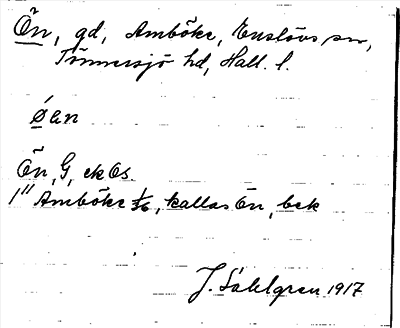 Ön, gd, Amböke, Enslövs sn,
Tönnersjö hd, Hall. l.
Öen
Ön, G, ek Os.
1" Amböke 1/56, kallas Ön, bek
J. Sahlgren 1917